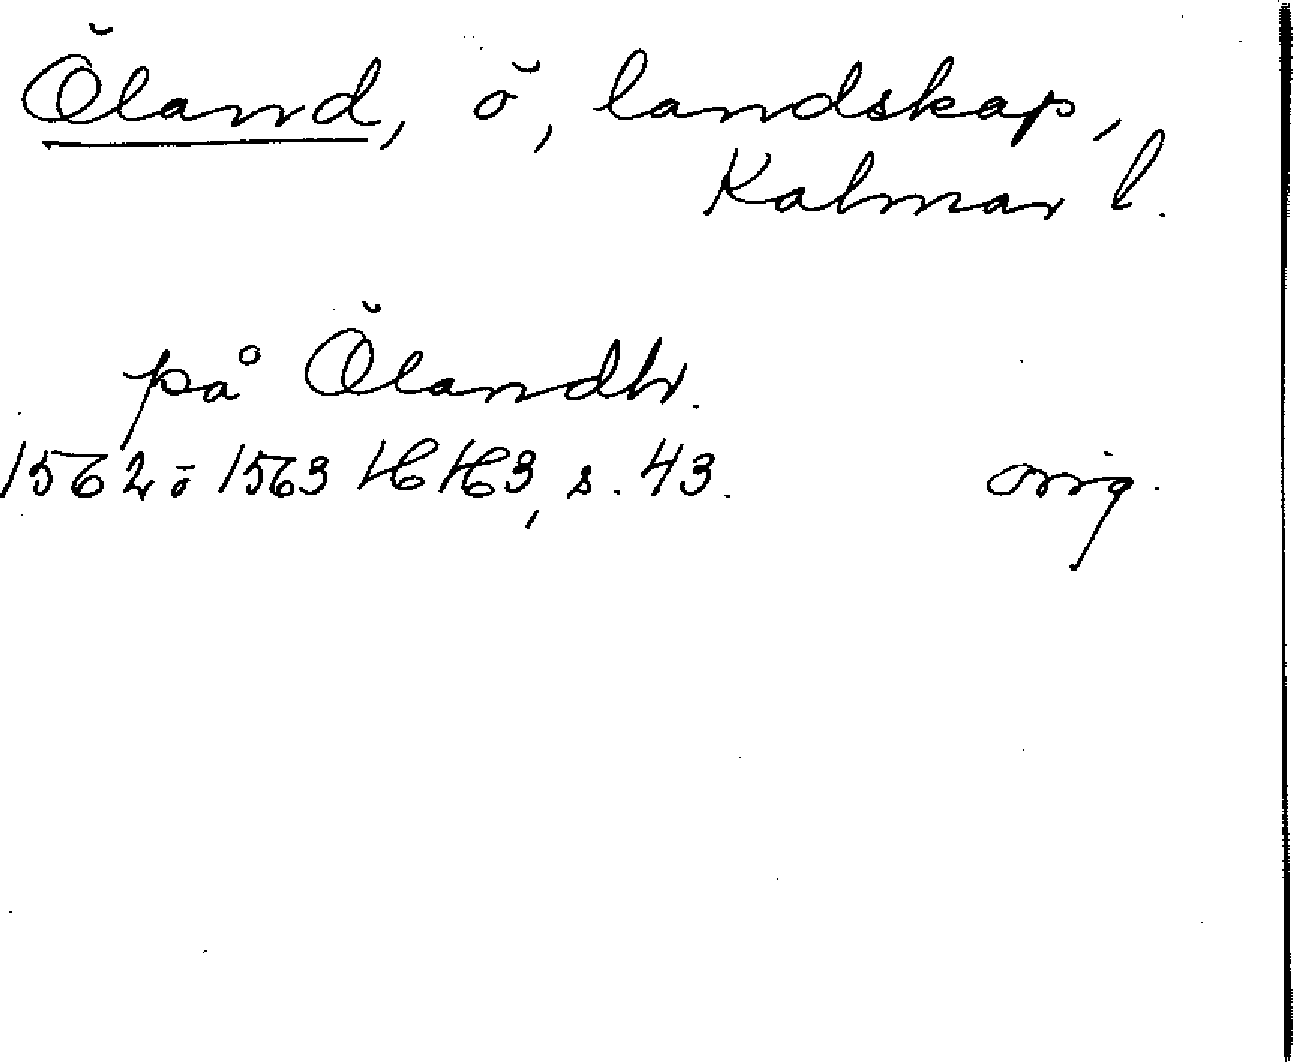 Öland, ö, landskap,
Kalmar l.
på Ölandh.
1562 ö 1563 HH3, s. 43. orig.